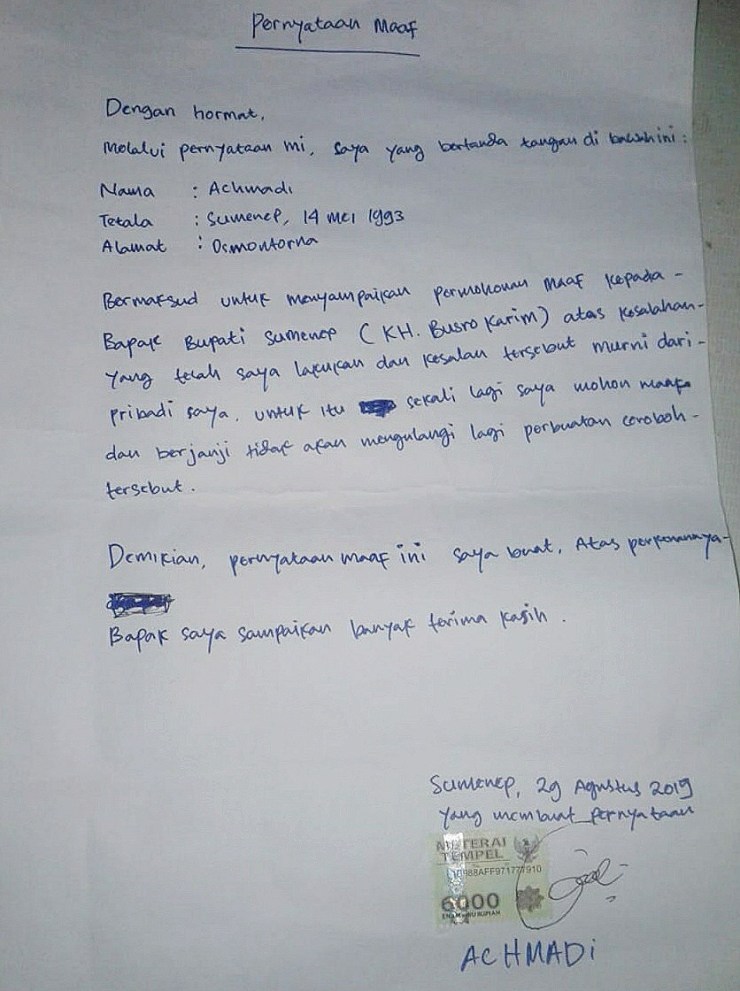 Pernyataan Maaf
Dengan hormat,
Melalui pernyataan ini, saya yang bertanda tangan di bawah ini :
Nama : Achmadi
Tetala : Sumenep, 14 Mei 1993
Alamat : Osmontorna
Bermaksud untuk menyampaikan permohonan maaf kepada -
Bapak Bupati Sumenep (KH. Busro Karim) atas kesalahan -
yang telah saya lakukan dan kesalan tersebut murni dari -
pribadi saya, untuk itu sekali lagi saya mohon maaf
dan berjanji tidak akan mengulangi lagi perbuatan ceroboh -
tersebut.
Demikian, pernyataan maaf ini saya buat, Atas perkenannya -
Bapak saya sampaikan banyak terima kasih.
Sumenep, 29 Agustus 2019
yang membuat pernyataan
METERAI
TEMPEL
6000
ENAM RIBU RUPIAH
ACHMADi